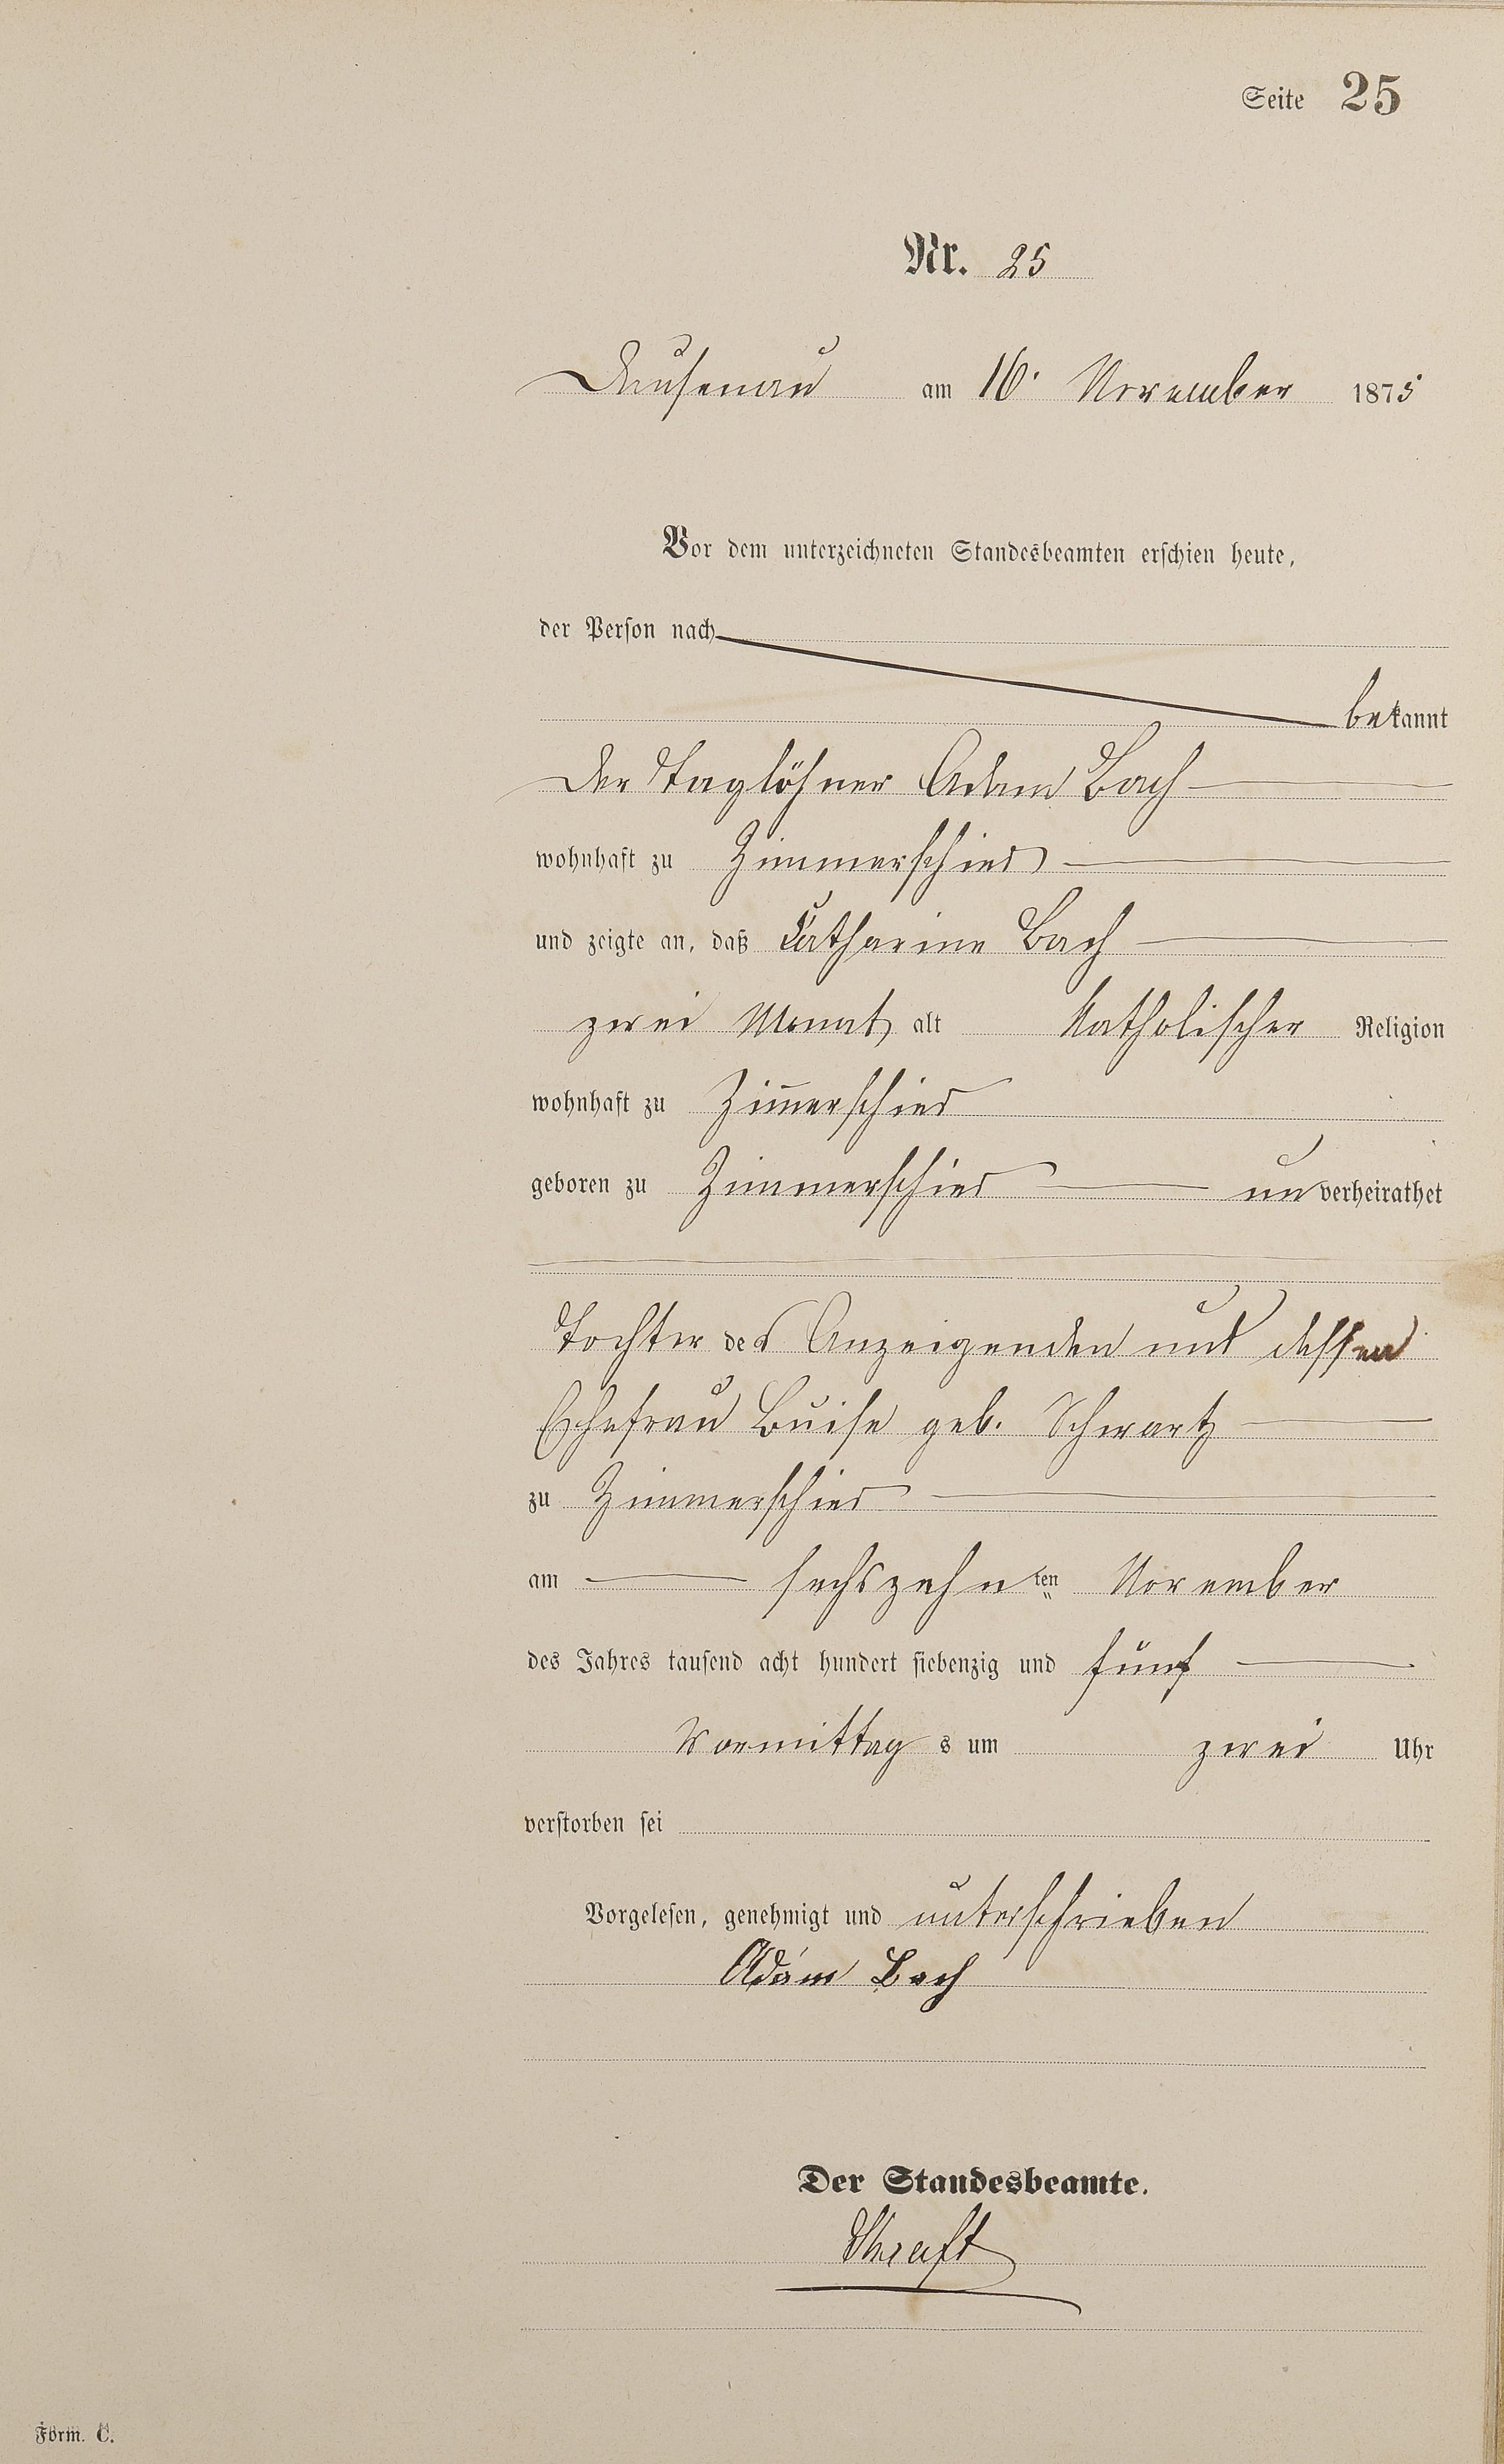 Seite 25
Nr. 25
Dausenau am 16. November 1875
Vor dem unterzeichneten Standesbeamten erschien heute,
der Person nach
bekannt
der Taglöhner Adam Bach
wohnhaft zu Zimmerschied
und zeigte an, daß Catharine Bach
zwei Monat alt katholischer Religion
wohnhaft zu Zim̄erschied
geboren zu Zimmerschied unverheirathet
Tochter des Anzeigenden und dessen
Ehefrau Luise geb. Schwartz
zu Zimmerschied
am sechszehnten November
des Jahres tausend acht hundert siebenzig und fünf
Vormittags um zwei Uhr
verstorben sei
Vorgelesen, genehmigt und unterschrieben
Adam Bach
Der Standesbeamte.
Form. C.